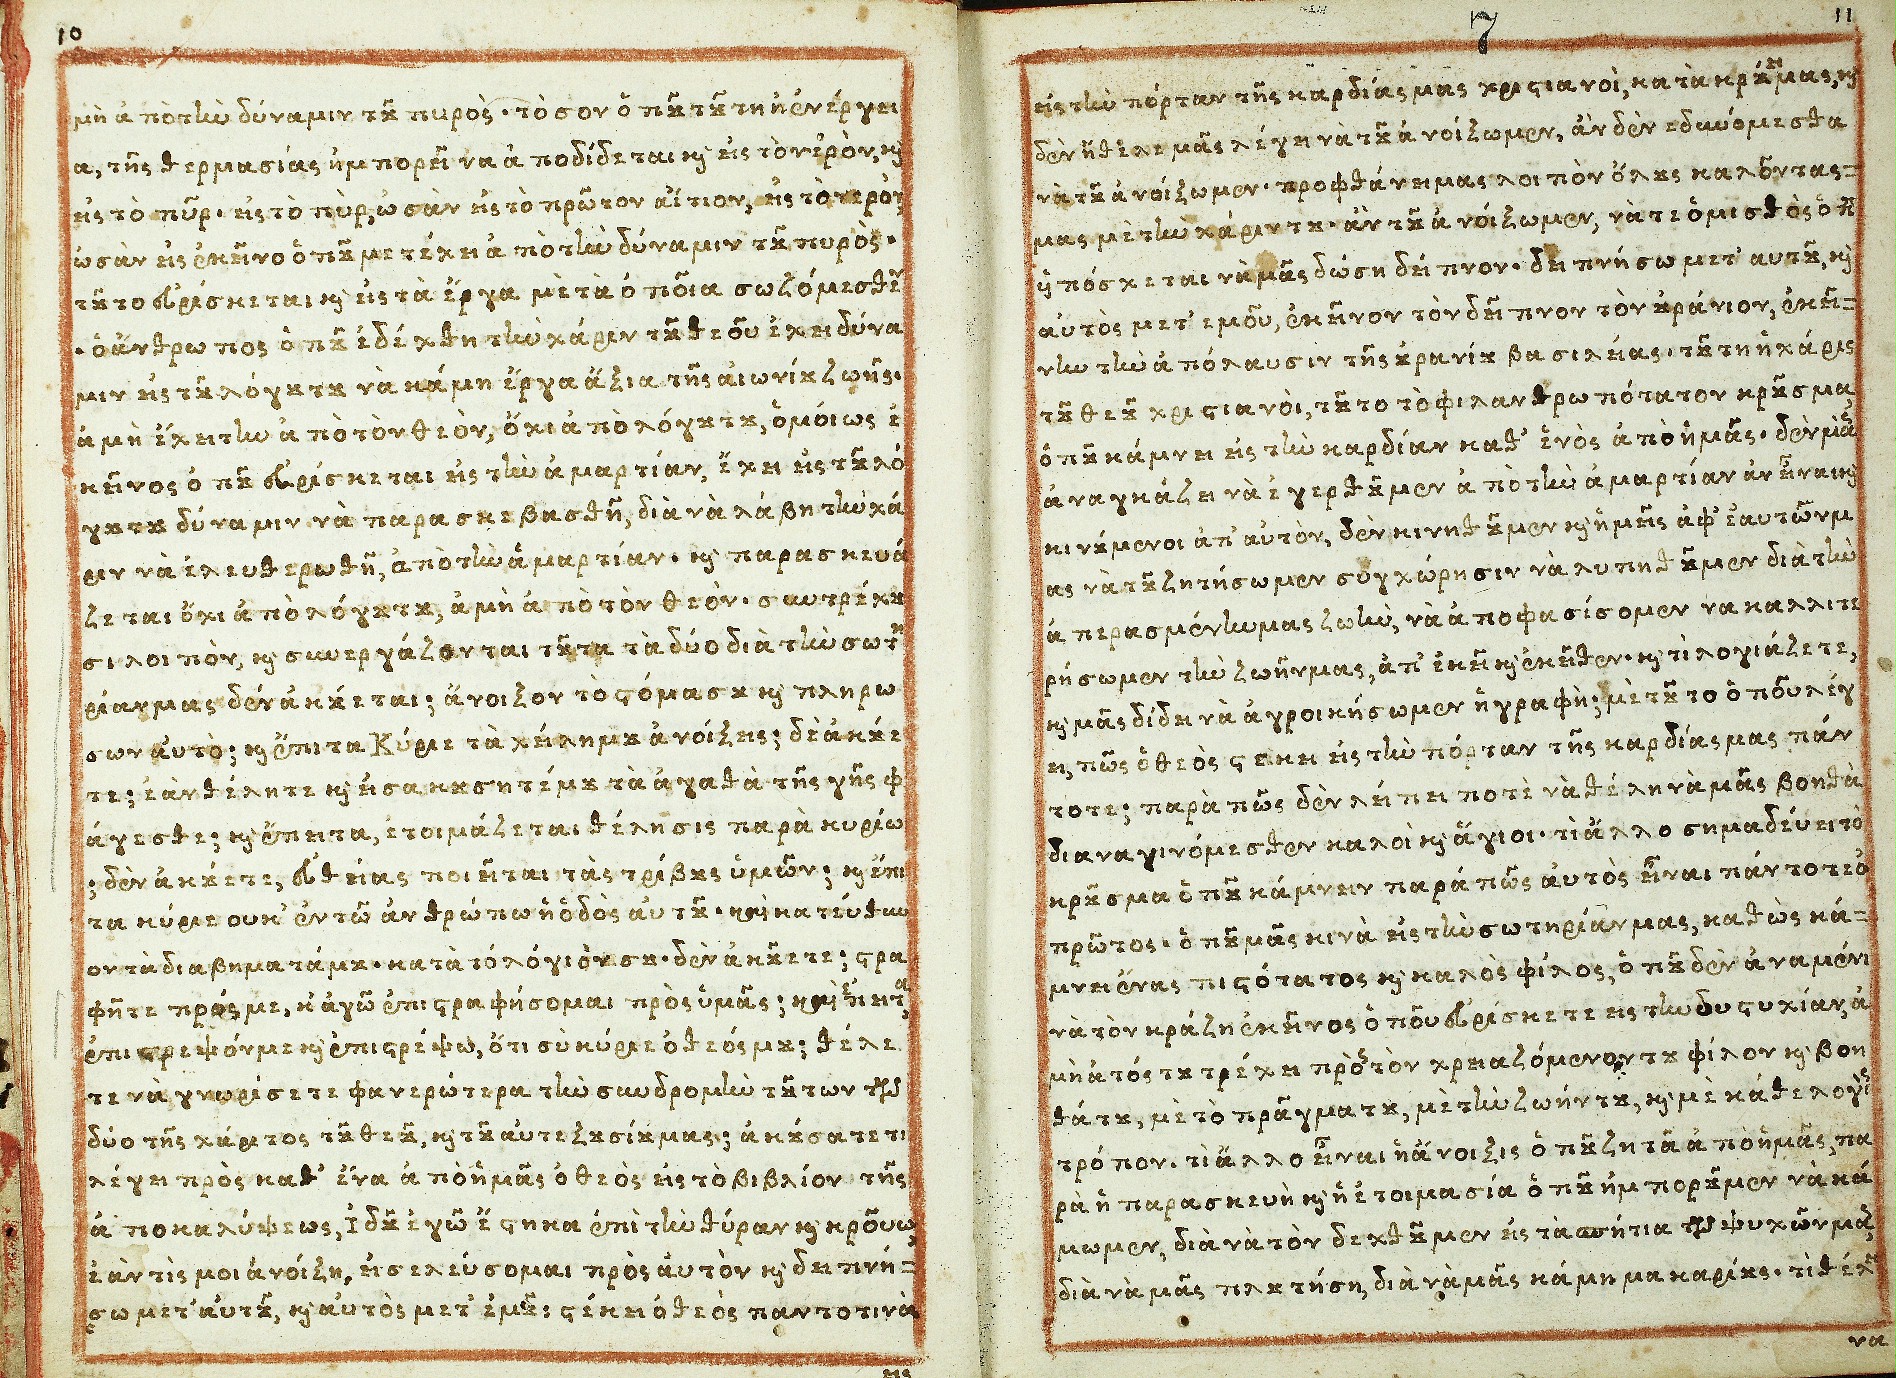 10
μὴ ἀπὸ τὴν δύναμιν τοῦ πυρὸς· τόσον ὁποῦ τούτη ἡ ἐνέργει
α, τῆς θερμασίας ἠμπορεῖ να ἀποδίδεται καὶ εἰς τὸ νερὸν, καὶ
εἰς τὸ πῦρ· εἰς τὸ πῦρ, ὡσὰν εἰς τὸ πρῶτον αἴτιον, εἰς τὸ νερὸν
ὡσὰν εἰς ἐκεῖνο ὁποῦ μετέχει ἀπὸ τὴν δύναμιν τοῦ πυρὸς·
τοῦτο εὑρίσκεται καὶ εἰς τὰ ἔργα μὲ τὰ ὁποῖα σωζόμεσθεν
· ὁ ἄνθρωπος ὁποῦ ἐδέχθη τὴν χάριν τοῦ θεοῦ ἔχει δύνα
μιν εἰς τοῦ λόγου του νὰ κάμη ἔργα ἄξια τῆς αἰωνίου ζωῆς·
ἀμὴ ἔχει την ἀπὸ τὸν θεὸν, ὄχι ἀπὸ λόγου του, ὁμόιως ἐ
κεῖνος ὁποῦ εὑρίσκεται εἰς τὴν ἁμαρτίαν, ἔχει εἰς τοῦ λό
γου του δύναμιν νὰ παρασκεβασθῆ, διὰ νὰ λάβη τὴν χά
ριν νὰ ἐλευθερωθῆ, ἀπὸ τὴν ἁμαρτίαν· καὶ παρασκευά
ζεται ὄχι ἀπὸ λόγου του, ἀμὴ ἀπὸ τὸν θεὸν· συντρέχου
σι λοιπὸν, καὶ συνεργάζονται τοῦτα τὰ δύο διὰ τὴν σωτη
ρίαν μας δὲν ἀκούεται; ἄνοιξον τὸ στόμα σου καὶ πληρω
σων αὐτὸ; καὶ ἔπιτα Κύριε τὰ χείλη μου ἀνοίξεις; δὲ ἀκούε
τε; ἐὰν θέλητε καὶ εἰσακουσητέ μου τὰ ἀγαθὰ τῆς γῆς φ
άγεσθε; καὶ ἔπειτα, ἑτοιμάζεται θέλησις παρὰ κυρίω
; δὲν ἀκούετε, εὐθείας ποιεῖται τὰς τρίβους ὑμῶν; καὶ ἔπι
τα κύριε ουκ' ἐν τῶ ἀνθρώπω ἡ ὁδὸς αὐτοῦ· καὶ κατέυθυν
ον τὰ διαβηματά μου· κατὰ τό λόγιόν σου· δὲν ἀκοῦετε; στρα
φῆτε πρός με, κ' ἀγῶ ἐπιστραφήσομαι πρὸς ὑμᾶς; καὶ ἔπειτα,
ἐπιστρεψόν με καὶ ἐπιστρέψω, ὅτι σὺ κύριε ὁ θεός μου; θέλε
τε νὰ γνωρίσετε φανερώτερα τὴν συνδρομὴν τοῦτων τῶν
δύο τῆς χάριτος τοῦ θεοῦ, καὶ τοῦ αὐτεξουσίου μας; ἀκούσατε τι
λέγει πρὸς καθ' ἕνα ἀπὸ ἡμᾶς ὁ θεὸς εἰς τὸ βιβλίον τῆς
ἀποκαλύψεως, Ἰδοῦ ἐγῶ ἕστηκα ἐπὶ τὴν θύραν καὶ κροῦω,
ἐὰν τὶς μοι ἀνοίξη, εἰσελεύσομαι πρὸς ἀυτὸν καὶ δειπνή=
σω μετ' ἀυτοῦ, καὶ ἀυτὸς μετ' ἐμοῦ: στέκει ὁ θεὸς παντοτινὰ
εις
7
11
εἰς τὴν πόρταν τῆς καρδίας μας χριστιανοὶ, κατὰ κρούει μας, καὶ
δὲν ἤθελε μᾶς λέγη νὰ τοῦ ἀνοίξωμεν, ἀν δὲν εδυνόμεσθα
νὰ τοῦ ἀνοίξωμεν· προφθάνει μας λοιπὸν ὅλους καλῶντας=
μας μὲ τὴν χάριν του· ἀν τοῦ ἀνοίξωμεν, νάτε ὁ μισθὸς ὁποῦ
ὑπόσχεται νὰ μᾶς δώση δεῖπνον· δειπνήσω μετ' αυτοῦ, καὶ
αὐτὸς μετ' εμοῦ, ἐκεῖνον τὸν δεῖπνον τὸν οὐράνιον, ἐκεῖ=
νην τὴν ἀπόλαυσιν τῆς οὐρανίου βασιλείας· τούτη ἡ χάρις
τοῦ θεοῦ χριστιανὸι, τοῦτο τὸ φιλανθρωπότατον κροῦσμα,
ὁποῦ κάμνει εἰς τὴν καρδίαν καθ' ἑνὸς ἀπὸ ἡμᾶς· δὲν μᾶς
ἀναγκάζει νὰ ἐγερθοῦμεν ἀπὸ τὴν ἁμαρτίαν ἀν εἶναι καὶ
κινούμενοι ἀπ' αὐτὸν, δὲν κινηθοῦμεν καὶ ἡμεῖς ἀφ' ἑαυτῶν μ
ας νὰ τοῦ ζητήσωμεν συγχώρησιν νὰ λυπηθοῦμεν διὰ τὴν
ἀπερασμένην μας ζωὴν, νὰ ἀποφασίσομεν να καλλιτε
ρήσωμεν τὴν ζωῆν μας, ἀπ' ἐκεῖ καὶ ἐκεῖθεν· καὶ τὶ λογιάζετε,
καὶ μᾶς δίδει νὰ ἀγροικήσωμεν ἡ γραφὴ; μὲ τοῦτο ὁποῦ λέγ
ει, πῶς ὁ θεὸς στεκει εἰς τὴν πόρταν τῆς καρδίας μας πάν
τοτε; παρὰ πῶς δὲν λείπει ποτὲ νὰ θέλη νὰ μᾶς βοηθὰ
δια να γινόμεσθεν καλοὶ καὶ ἅγιοι· τὶ ἄλλο σημαδέυει τὸ
κροῦσμα ὁποῦ κάμνειν παρά πῶς ἀυτὸς εἶναι πάντοτε ὁ
πρῶτος· ὁποῦ μᾶς κινὰ εἰς τὴν σωτηρίαν μας, καθὼς κά=
μνει ἕνας πιστότατος καὶ καλὸς φίλος, ὁποῦ δὲν ἀναμένι
νὰ τὸν κράζη ἐκεῖνος ὁποῦ εὑρίσκετε εις την δυστυχίαν, ἀ
μὴ ἀτός του τρέχει πρὸς τὸν χρειαζόμενον του φίλον καὶ βοη
θάτου, μὲ τὸ πρᾶγμα του, μὲ τὴν ζωήν του, καὶ μὲ κάθε λογῆς
τρόπον· τὶ ἄλλο εἶναι ἡ ἄνοιξις ὁποῦ ζητᾶ ἀπὸ ἡμᾶς, πα
ρὰ ἡ παρασκευὴ καὶ ἡ ἑτοιμασία ὁποῦ ἠμποροῦμεν νὰ κά
μωμεν, διὰ νὰ τὸν δεχθοῦμεν εἰς τὰ σπήτια τῶν ψυχῶν μας,
διὰ νὰ μᾶς πλουτήση, διὰ νὰ μᾶς κάμη μακαρίους· τὶ θέλει
να